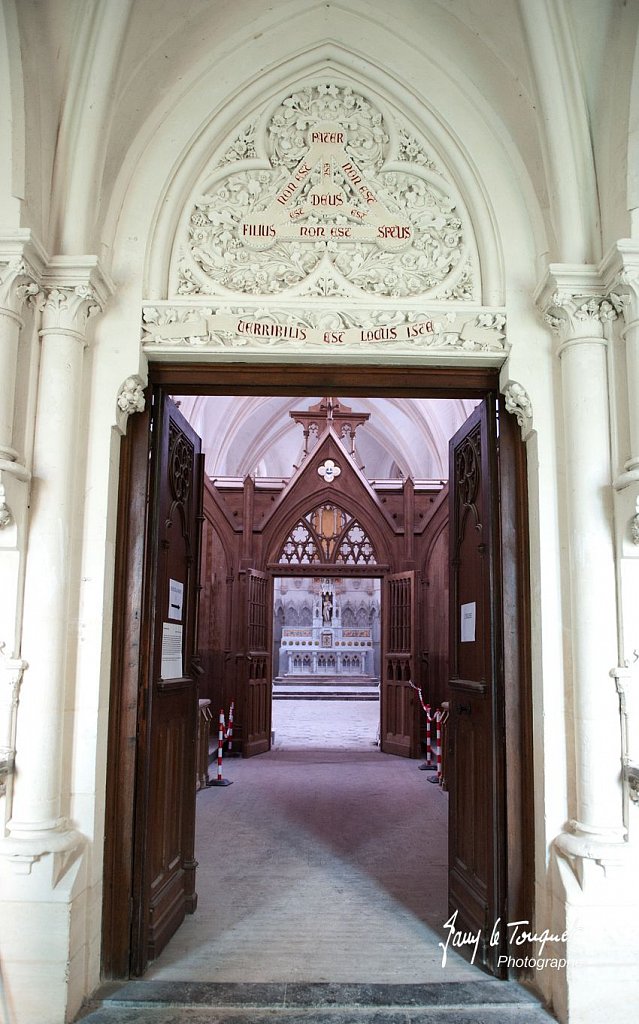 PATER
NON EST EST NON EST
EST DEUS EST
FILIUS NON EST SPTUS
TERRIBILIS EST LOCUS ISTE
Photographe